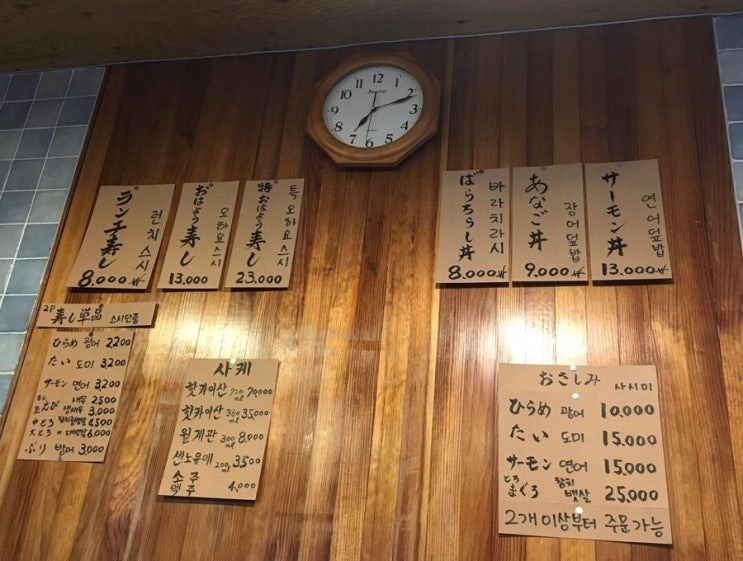 ランチ寿し
런치스시
8.000₩
おはよう寿し
오하요스시
13.000
特おはよう寿し
특오하요스시
23.000
ばらちらし丼
바라치라시
8.000₩
あなご丼
장어덮밥
9.000₩
サーモン丼
연어덮밥
13.000₩
2P 寿し単品 스시단품
ひらめ 광어 2200
たい 도미 3,200
サーモン 연어 3,200
えび 새우 2500
生えび 생새우 3,000
中とろ 4,500
大とろ 6,000
ぶり 방어 3,000
사케
핫카이산 720ml 79000
핫카이산 360ml 35,000
월계관 300ml 8,000
센노유메 200ml 3,500
소주
맥주 4,000
おさしみ 사시미
ひらめ 광어 10,000
たい 도미 15,000
サーモン 연어 15,000
とろ まぐろ 참치 뱃살 25,000
2개이상부터 주문가능
12 1 2 3 4 5 6 7 8 9 10 11